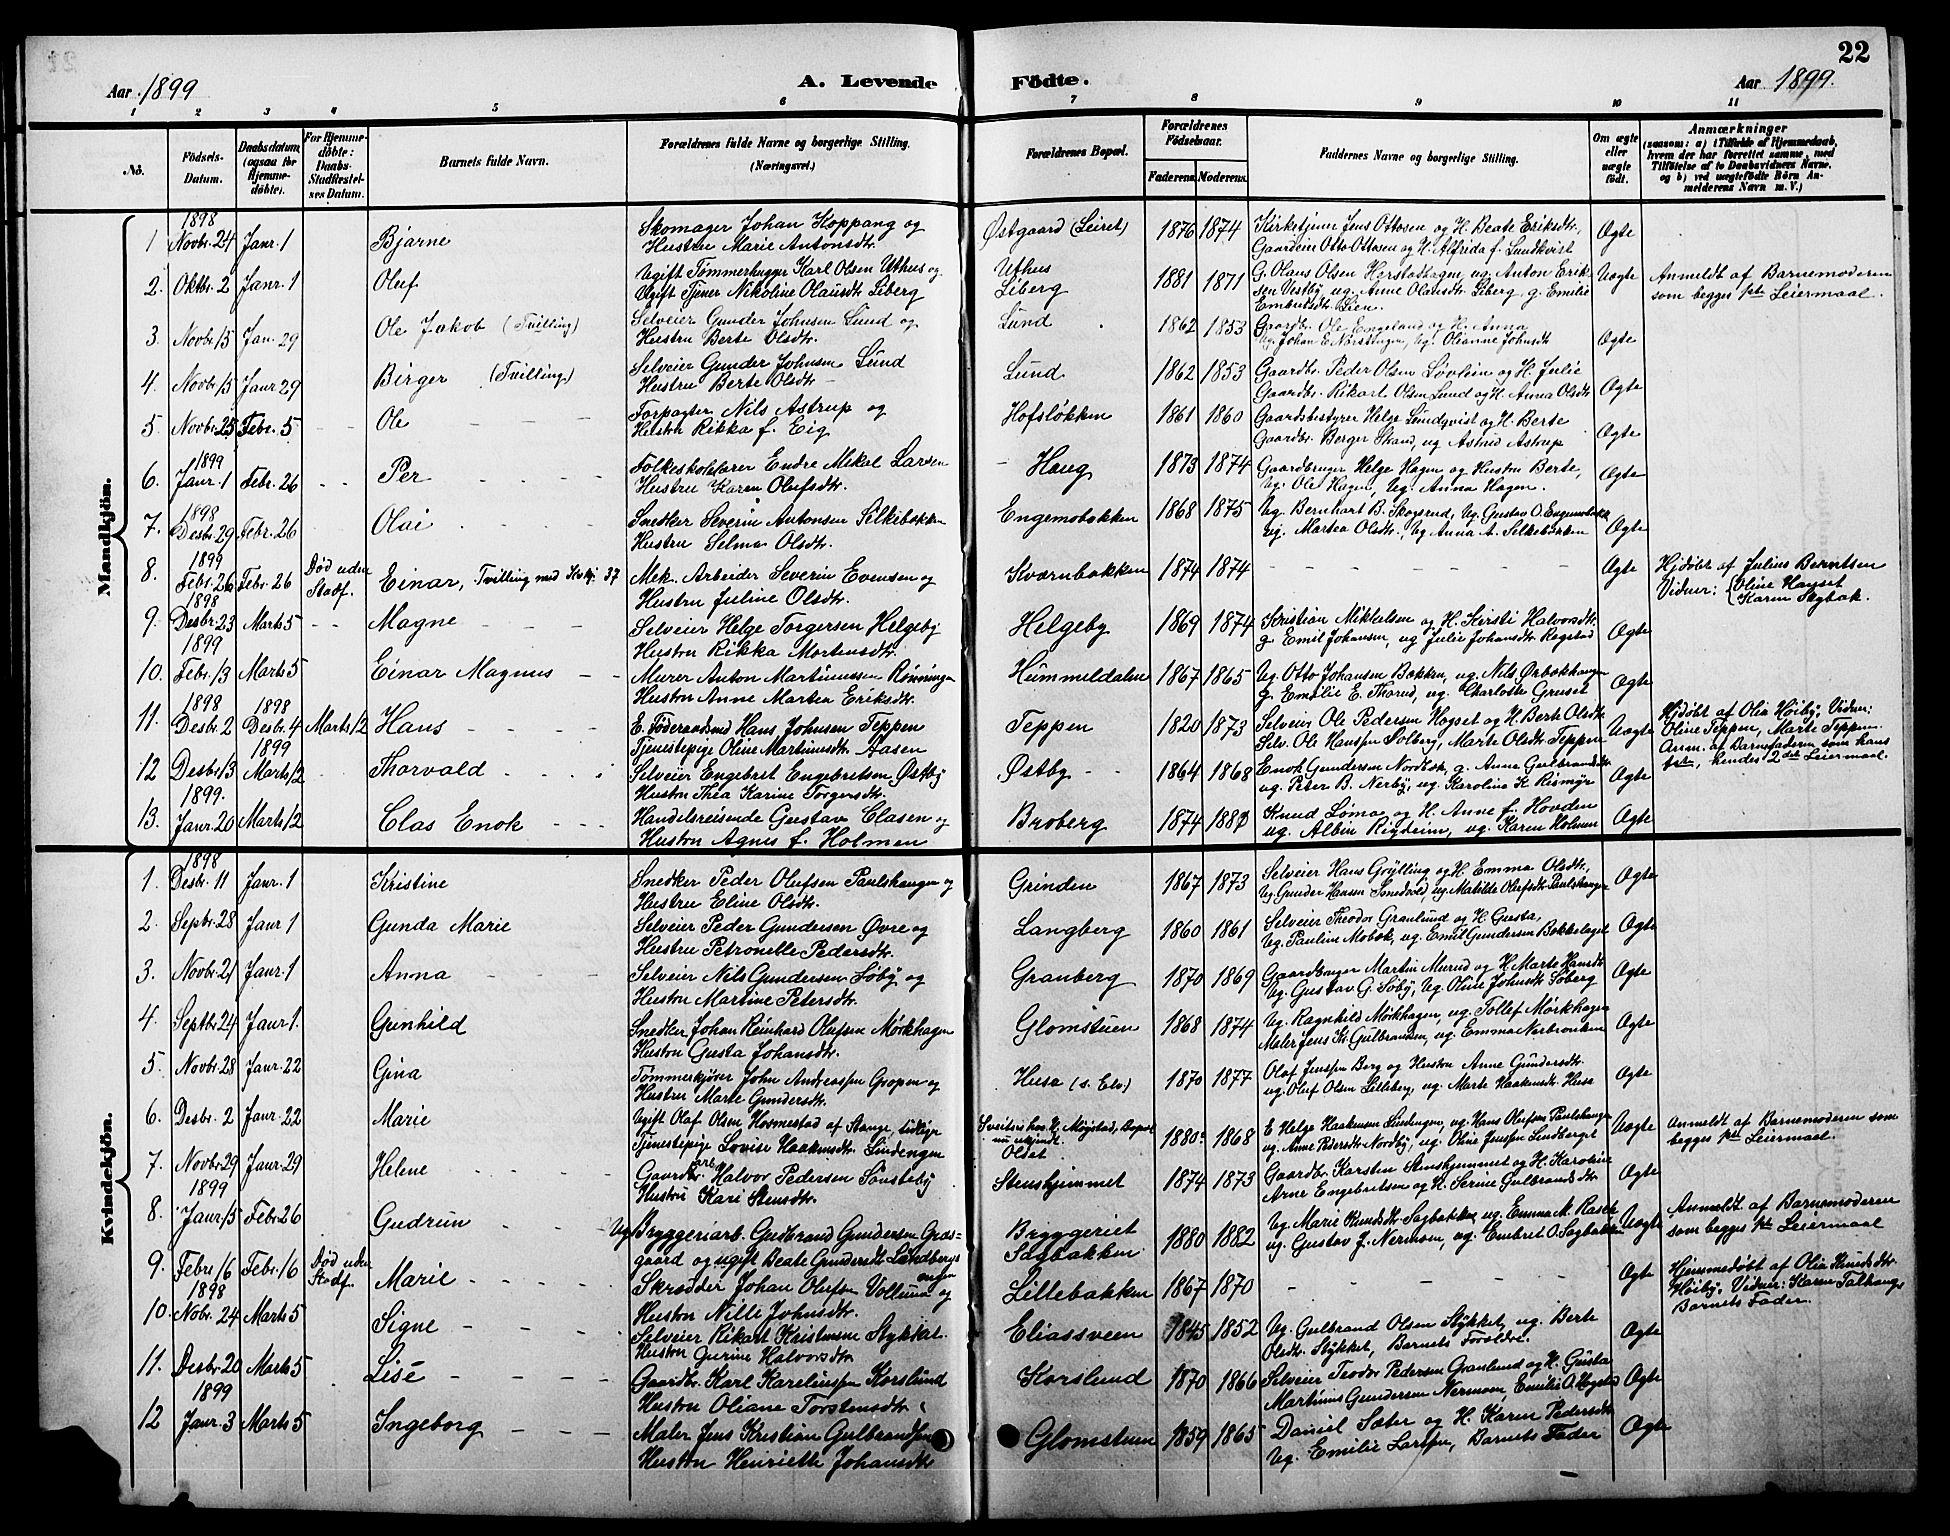 22
Aar 1899
A. Levende
Födte.
Aar 1899.
1 2 3 4 5 6 7 8 9 10 11
No.
Födsels-Datum.
Daabsdatum (ogsaa for Hjemme-döbte).
For Hjemme-döbte: Daabs-Stadfæstel-ses Datum.
Barnets fulde Navn.
Forældrenes fulde Navne og borgerlige Stilling. (Næringsvei.)
Forældrenes Bopæl.
Forældrenes Födselsaar.
Faderens. Moderens.
Faddernes Navne og borgerlige Stilling.
Om ægte eller uægte födt.
Anmærkninger
(saasom: a) i Tilfælde af Hjemmedaab, hvem der har forrettet samme, med Tilföielse af to Daabsvidners Navne, og b) ved uægtefödte Börn An-melderens Navn m. V.)
Mandkjön.
1898
1 Novbr. 24 Janr. 1 Bjarne Skomager Johan Koppang og Østgaard (Leiret) 1876 1874 Kirketjener Jens Ottosen og H. Beate Eriksdtr, Ægte
Hustru Marie Antonsdtr. Gaardein Otto Ottosen og H. Alfrida f. Lundkvist
2. Oktbr. 2 Janr. 1 Oluf Ugift Tømmerhugger Karl Olsen Uthus og Uthus 1881 1871 G. Olaus Olsen Herstadhagen, ug. Anton Erik- Uægte Anmeldt af Barnemoderen
Ugift Tjener Nikoline Olausdtr. Liberg Liberg sen Vestby, ug. Anne Olausdtr. Liberg, g. Emilie som begges 1ste Leiermaal.
Embretsdtr. Lien.
3. Novbr. 15 Jan. 29 Ole Jakob (Tvilling) Selveier Gunder Johnsen Lund og Lund 1862 1853 Gaardbr. Ole Engelund og H. Anna Ægte
Hustru Berte Olsdtr. Ug. Johan E. Norstengen, Ug. Olianne Johnsdtr
4. Novbr. 15 Janr 29 Birger (Tvilling) Selveier Gunder Johnsen Lund Lund 1862 1853 Gaardbr. Peder Olsen Løvlien og H. Julie Ægte
Hustru Berte Olsdtr. Gaardbr. Rikart Olsen Lund og H. Anna Olsdtr
5 Novbr. 25 Febr. 5 Ole Forpagter Nils Astrup og Hofsløkken 1861 1860 Gaardsbestyrer Helge Lundqvist og H. Berte Ægte
Hustru Rikka f. Eig Gaardbr. Berger Skand, ug Astrid Astrup
1899
6. Janr. 1 Febr. 26 Per Folkeskolelærer Endre Mikal Larsen Haug 1873 1874 Gaardbruger Helge Hagen og Hustru Berte, Ægte
Hustru Karen Olufsdtr. Ug. Ole Hagen, Ug. Anna Hagen.
1898
7. Desbr. 29 Febr. 26 Olai Snedker Severin Antonsen Silkebækken Engemobakken 1868 1875 Ug. Bernhart B. Skogsrud, Ug. Gustav O. Engemobakk Ægte
Hustru Selma Olsdtr. ug. Martea Olsdtr., Ug Anna A. Silkebækken
1899
8. Febr. 26 Febr. 26 Død uden Stadf. Einar, Tvilling med Kvkj. 37 Mek. Arbeider Severin Evensen og Kværnbakken 1874 1874 Ægte Hjdøbt af Julius Berntsen
Hustru Juline Olsdtr. Vidner: Oline Hayset
Karen Sagbak.
1898
9. Desbr. 23 Marts 5 Magne Selveier Helge Torgersen Helgeby Helgeby 1869 1874 Kristian Mikkelsen og H. Kirsti Halvorsdtr. Ægte
Hustru Rikka Mortensdtr. g. Emil Johansen, ug Julie Johansdtr Rogstad
1899
10. Febr. 13 Marts 5 Einar Magnus Murer Anton Martinussen Rønningen Hummeldalen 1867 1865 Ug. Otto Johansen Bakken, ug. Nils Ørbækhagen Ægte
Hustru Anne Martea Eriksdtr. g. Emilie E. Thorud, ug. Charlotte Gruset
1898 1898
11. Desbr. 2 Desbr. 4 Marts 12 Hans E. Föderaadsmd Hans Johnsen Teppen Teppen 1820 1873 Selveier Ole Pedersen Hayset og H. Berte Olsdtr. Uægte Hjdøbt af Olia Høiby, Vidner:
Tjenestepige Oline Martinusdtr. Aasen Selv. Ole Hansen Solberg, Marte Olsdtr Teppen Oline Teppen, Marte Teppen.
Anm. af Barnefaderen som hans
1ste, hendes 2det Leiermaal.
1899
12 Desbr. 13 Marts 12 Thorvald Selveier Engebret Engebretsen Østby Østby 1864 1868 Enok Gundersen Nordbæk, g. Anne Gulbrandsdtr Ægte
Hustru Thea Karine Torgersdtr. ug. Peter B. Nerby, ug Karoline K. Rismyr
1899.
13. Janr. 20 Marts 12 Clas Enok Handelsreisende Gustav Clasen og Broberg 1874 Knud Løma og H. Anne f. Hovden Ægte
Hustru Agnes f. Holmen ug. Albin Righeim, ug. Karen Holmen
Kvindekjön.
1898
1. Desbr. 11 Janr. 1 Kristine Snedker Peder Olufsen Paulshaugen og Grinden 1867 1873 Selveier Hans Grylling og H. Emma Olsdtr., Ægte
Hustru Eline Olsdtr. Ug. Gunder Hansen Smedvold, ug Matilde Olufsdtr Paulshaugen
2. Septbr. 28 Janr 1 Gunda Marie Selveier Peder Gundersen Øvre og Langberg 1860 1861 Selveier Theodor Granlund og H. Gusta, Ægte
Hustru Petronelle Pedersdtr. Ug. Pauline Mobæk, ug. Emil Gundersen Bækkelaget
3. Novbr. 21 Janr. 1 Anna Selveier Nils Gundersen Søby og Granberg 1870 1869 Gaardbruger Martin Murud og H. Marte Hansdtr Ægte
Hustru Martine Petersdtr. Ug. Gustav G. Søby, Ug. Oline Johnsdtr Søberg
4. Septbr. 24 Janr 1. Gunhild Snedker Johan Reinhard Olufsen Mørkhagen Glomstuen 1868 1874 Ug. Ragnhild Mørkhagen, ug. Tollef Mørkhagen Ægte
Hustru Gusta Johansdtr. Maler Jens Kr. Gulbrandsen, ug. Emma Nerbroniken
5 Novbr. 28 Janr. 22 Gina Tømmerkjører John Andreassen Gropen og Husa (s. Elv) 1870 1877 Olaf Jenssen Berg og Hustru Anne Gundersdtr Ægte
Hustru Marte Gundersdtr. ug. Oluf Olsen Lilleberg, ug. Marte Haakensdtr Husa
6. Desbr. 2 Janr. 22 Marie Ugift Olaf Olsen Hosmestad af Stange, tidlige Sveitser hos H. Møistad, Bopæl 1880 1868 E Helge Haakensen Lindengen, ug. Hans Olufsen Paulshaugen Uægte Anmeldt af Barnemoderen som
Tjenestepige Lovise Haakensdtr. Lindengen nu ukjendt. Oldet ug. Anne Petersdtr Nordby, ug. Oline Jenssen Lundberget begges 1ste Leiermaal.
7 Novbr. 29 Janr. 29 Helene Gaardbr. Halvor Pedersen Sønsteby Stenshjemmet 1874 1873 Gaardbr. Karsten Stenshjemmet og H. Karoline Ægte
Hustru Kari Stensdtr. Arne Engebretsen og H. Serine Gulbrandsdtr
1899
8. Janr. 15 Febr. 26 Gudrun Ug. Bryggeriarb. Gudbrand Gundersen Græs- Bryggeriet 1880 1882 Ug. Marie Knudsdtr Sagbakken, ug. Emma M. Rasch Uægte Anmeldt af Barnemoderen
gaard og ugift Beate Gundersdtr Lundbergs- Sagbakken ug. Gustav J. Nermoen, ug. Embret O. Sagbakken som begges 1ste Leiermaal
engen
9. Febr. 16 Febr. 16 Død uden Stadf. Marie Skrædder Johan Olufsen Vollum og Lillebakken 1867 1870 Ægte Hjemmedøbt af Olia Knudsdtr.
Hustru Nille Johnsdtr. Høiby, Vidner: Karen Talhaug,
Barnets Fader.
1898
10. Nobr. 24 Marts 5 Signe Selveier Rikart Kristensen Stykket. Eliassveen 1845 1852 Ug. Gulbrand Olsen Stykket, ug. Berte Ægte
Hustru Gurine Halvorsdtr Olsdtr. Stykket, Barnets Forældre.
11. Desbr. 20 Marts 5 Lise Gaardbr. Karl Kareliussen Korslund Korslund 1870 1866 Selveier Teodor Pedersen Granlund og H. Gusta Ægte
Hustru Oliane Torstensdtr. Martinus Gundersen Nermoen, Emilie O. Mogstad
1899
12 Janr. 3 Marts 5 Ingeborg Maler Jens Kristian Gulbrandsen Glomstuen 1859 1865 Daniel Sæter og H. Karen Pedersdtr Ægte
Hustru Henriette Johansdtr Ug. Emilie Larssen, Barnets Fader